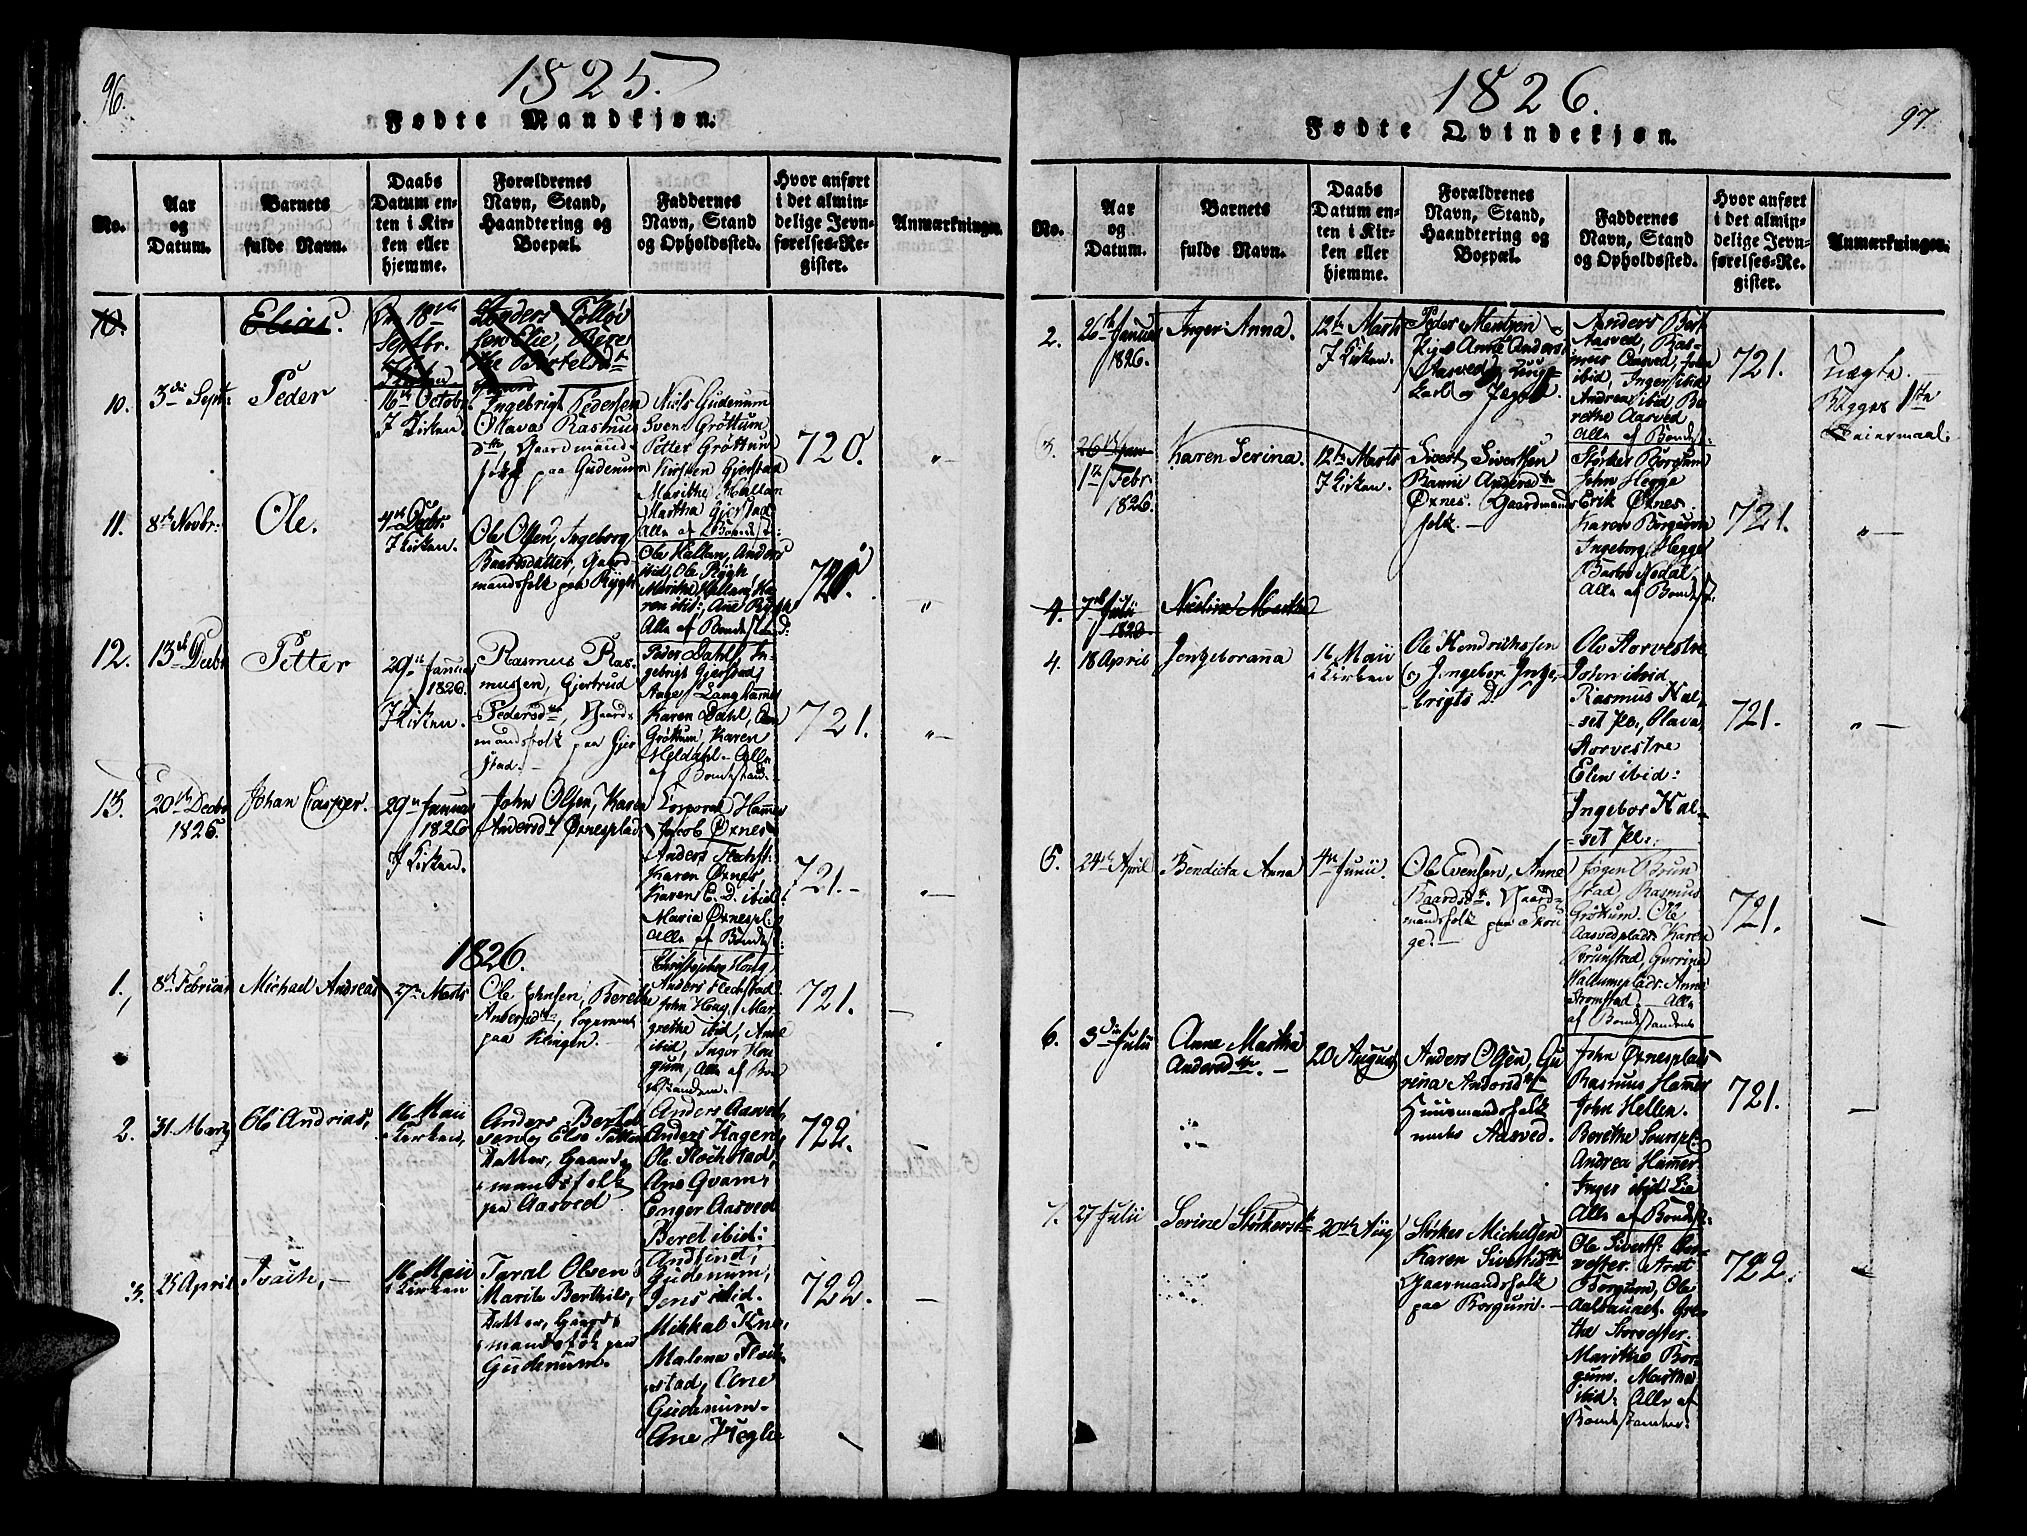 96.
1825.
Fødte Mandkjøn.
No.
Aar
og
Datum.
Barnets
fulde Navn.
Daabs
Datum en-
ten i Kir-
ken eller
hjemme.
Forældrenes
Navn, Stand,
Haandtering og
Boepæl.
Faddernes
Navn, Stand
og Opholdssted.
Hvor anført
i det almin-
delige Jevn-
førelses-Re-
gister.
Anmærkninger.
10
Elias.
18de
Septbr.
Anders
10.
3die Septr:
Peder
16de Octobr.
I Kirken.
Ingebrigt Pedersen
Olava Rasmus
dtr, Gaardmands
folk paa Gudenum
Niels Gudenum
Svend Gröttum
Petter Gröttum
Kirsten Gjerstad
Marithe Hallan
Martha Gjerstad
Alle af Bondest:
720.
11.
8de Novbr:
Ole.
4de Decbr.
I Kirken.
Ole Olsen, Ingeborg
Baardsdatter, Gaard
mandsfolk paa Rygh
Ole Hallan, Anders
ibid, Ole Rygh
Marithe Hallan, Ka
ren ibid:, Ane Rygh
Alle af Bondestand:
720.
12.
13de Decbr
Petter
29de Januar
1826.
I Kirken.
Rasmus Ras-
mussen, Gjertrud
Pedersdtr, Gaard-
mandsfolk paa Gjer
stad.
Peder Dahl, In-
gebrigt Gjerstad,
Langhammer
Karen Dahl,
Gröttum, Karen
Heldahl. Alle
af Bondestand.
721.
13.
20de Decbr
1825.
Johan Casper.
29de Januar
1826
I Kirken.
John Olsen, Karen
Andersdtr Øxnesplads
Corporal Hammer
Jacob Øxnes
Anders Flechst:
Karen Øxnes
Karen E. D. ibid.
Maria Øxnespl:
Alle af Bondest:
721.
1826.
1.
8de Februar
Michael Andreas
27de Marts
Ole Johnsen, Berethe
Andersdtr, Logerende
paa Klingen.
Christopher Houg
Anders Fleckstad
John Houg, Mar
grethe ibid, Anne
ibid, Inger Hou
gum, Alle af Bon
destanden.
721.
2.
31. Marty
Ole Andrias,
16 Maii
i Kirken,
Anders Berthel
sen og Else Petters
Datter, Gaard-
mandsfolk
paa Aasved
Anders Aasved,
Anders Hagen,
Ole Flochstad,
Ane Qvam,
Enger Aasved
Beret ibid:
722.
3.
25 April
16 Maii
i Kirken
Taral Olsen
Marit Berthils,
Datter, Gaard-
mandsfolk paa
Gudenum.
Gudenum,
Jens ibid.
Mikkal
Malena Floch-
stad, Ane
Gudenum.
Ane Hegle
722.
97.
1826.
Fødte Qvindekjøn.
No.
Aar
og
Datum.
Barnets
fulde Navn.
Daabs
Datum en-
ten i Kir-
ken eller
hjemme.
Forældrenes
Navn, Stand,
Haandtering og
Boepæl.
Faddernes
Navn, Stand
og Opholdssted.
Hvor anført
i det almin-
delige Jevn-
førelses-Re-
gister.
Anmærkninger.
2.
26de Januar
1826.
Inger Anna.
12te Marts
I Kirken.
Peder Mentzen
Pige Anne Anders
Aasved, Ung-
karl og Pige.
Anders Bert
Aasved, Ras-
mus Aasved, John
ibid, Inger ibid
Andrea ibid Be
rethe Aasved
Alle af Bondest:
721.
Uægte.
Begges 1ste
Leiermaal.
3.
26de Jan
1te Febr
1826.
Karen Serina.
12te Marts
I Kirken.
Sivert Sivertsen
Andersdtr
Øxnes. Gaardmands
folk.
Størker Borgum
John Hegge
Erik Øxnes.
Karen Borgum
Ingeborg Hegge
Nedal,
Alle af Bondest:
721.
4.
7de Julii
1826
Martha
4.
18 April
Jngeborana
16 Maii
i Kirken
Ole Hendrikssen
og Jngebor Inge-
brigts D.
Ole Aarvestre
John ibid
Rasmus Hal-
set Pl:, Olava,
Aarvestre
Elen ibid:
Ingebor Hal-
set Pl:
721.
5.
24de April
Bendicta Anna
4de Junii.
Ole Evensen, Anne
Baardsdtr. Gaard-
mandsfolk paa Skou
ge.
Jørgen Brun
stad, Rasmus
Gröttum. Ole
Aasvedplads. Karen
Brunstad, Gurrina
Anne
Strømstad. Alle
af Bondestanden
721.
6.
3die Julii
Anne Martha
Andersdtr.
20 August
Anders Olsen, Gu
rina Andersdtr
Huusmandsfolk
Aasved.
John Øxnesplads
Rasmus Hammer
John Hellen.
Berethe
Andrea Hammer
Inger ibid Lie
Alle af Bondest:
721.
7.
27 Julii
Serine Størkersdtr
20de Aug
Størker Michelsen
Karen Sivertsdtr
Gaarmandsfolk
paa Borgum.
Ole Sivertsen
Borgum, Ole
Aalbaunet. Gre-
the Storvester.
Marithe Bor-
gum. Martha
ibid. Alle af
Bondestanden.
722.